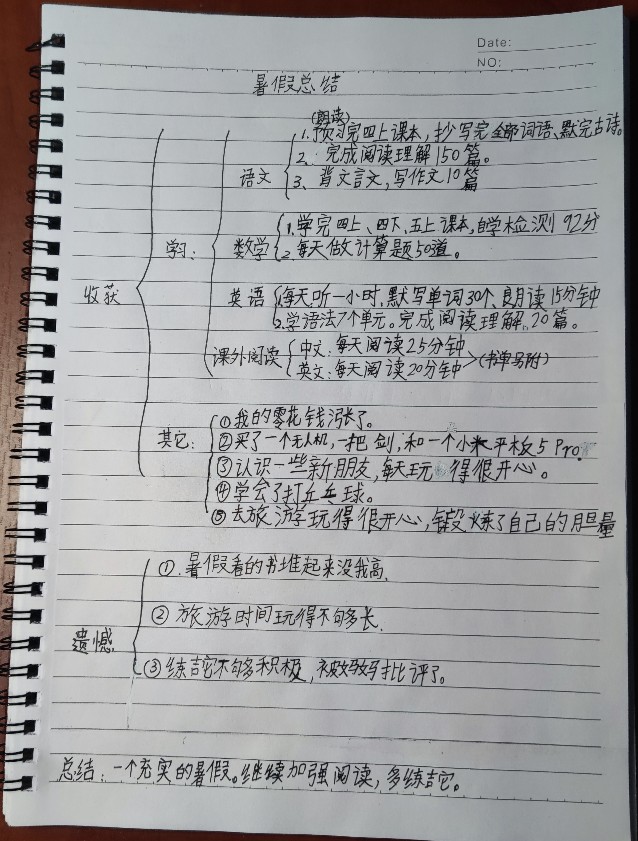 Date:
NO:
暑假总结
(朗读)
1、预习完四上课本，抄写完全部词语、默完古诗。
2、完成阅读理解150篇。
语文
3、背文言文，写作文10篇
1、学完四上、四下、五上课本，自学检测92分
学习：
数学
2、每天做文计算题50道。
收获
英语
1、每天听一小时，默写单词30个，朗读15分钟
2、学语法7个单元。完成阅读理解20篇。
课外阅读
中文：每天阅读25分钟
英文：每天阅读20分钟
(书单另附)
①我的零花钱涨了。
其它：
②买了一个无人机，一把剑，和一个小米平板5 Pro.
③认识一些新朋友，每天玩得很开心。
④学会了打乒乓球。
⑤去旅游学玩得很开心，锻炼了自己的胆量
①.暑假看的书堆起来没我高.
②旅游时间玩得不够多长.
遗憾
③练吉它不够积极，被妈妈批评了。
总结：一个充实的暑假。继续加强阅读，多练吉它。